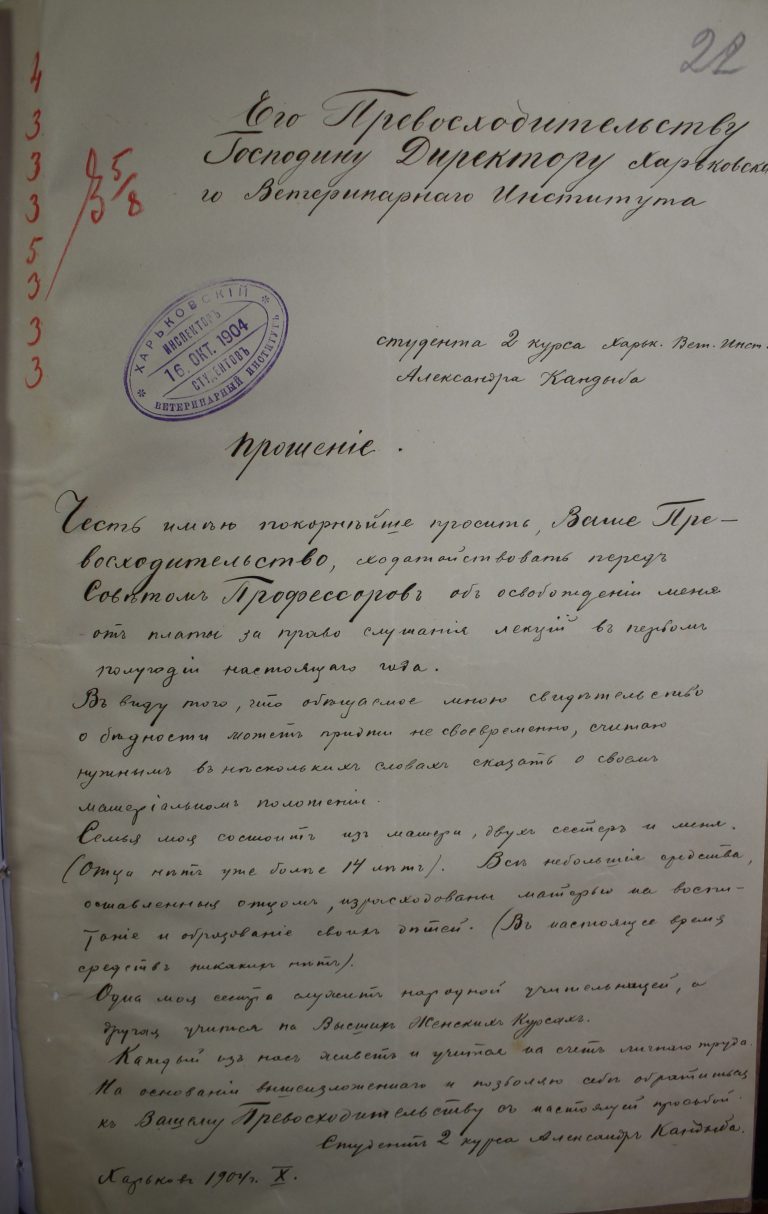 22
4
3
3
3
5
3
3
3
5/8
Его Превосходительству
Господину Директору Харьковска-
го Ветеринарнаго Института
ХАРЬКОВСКІЙ
ИНСПЕКТОРЪ
16. ОКТ. 1904
СТУДЕНТОВЪ
ВЕТЕРИНАРНЫЙ ИНСТИТУТЪ
студента 2 курса Харьк. Вет. Инст.
Александра Кандыба
Прошеніе.
Честь имѣю покорнѣйше просить, Ваше Пре-
восходительство, ходатайствовать передъ
Совѣтомъ Профессоровъ объ освобожденіи меня
отъ платы за право слушанія лекцій въ первомъ
полугодіи настоящаго года.
Въ виду того, что обѣщаемое мною свидѣтельство
о бѣдности можетъ придти не своевременно, считаю
нужнымъ въ нѣсколькихъ словахъ сказать о своемъ
матеріальномъ положеніи.
Семья моя состоитъ изъ матери, двухъ сестеръ и меня.
(Отца нѣтъ уже болѣе 14 лѣтъ). Всѣ небольшія средства,
оставленныя отцомъ, израсходованы матерью на воспи-
таніе и образованіе своихъ дѣтей. (Въ настоящее время
средствъ никакихъ нѣтъ).
Одна моя сестра служитъ народной учительницей, а
другая учится на Высшихъ Женскихъ Курсахъ.
Каждый изъ насъ живетъ и учится на счетъ личнаго труда.
На основаніи вышеизложеннаго и позволяю себѣ обратиться
къ Вашему Превосходительству съ настоящей просьбой.
Студентъ 2 курса Александръ Кандыба.
Харьковъ 1904 г. X.